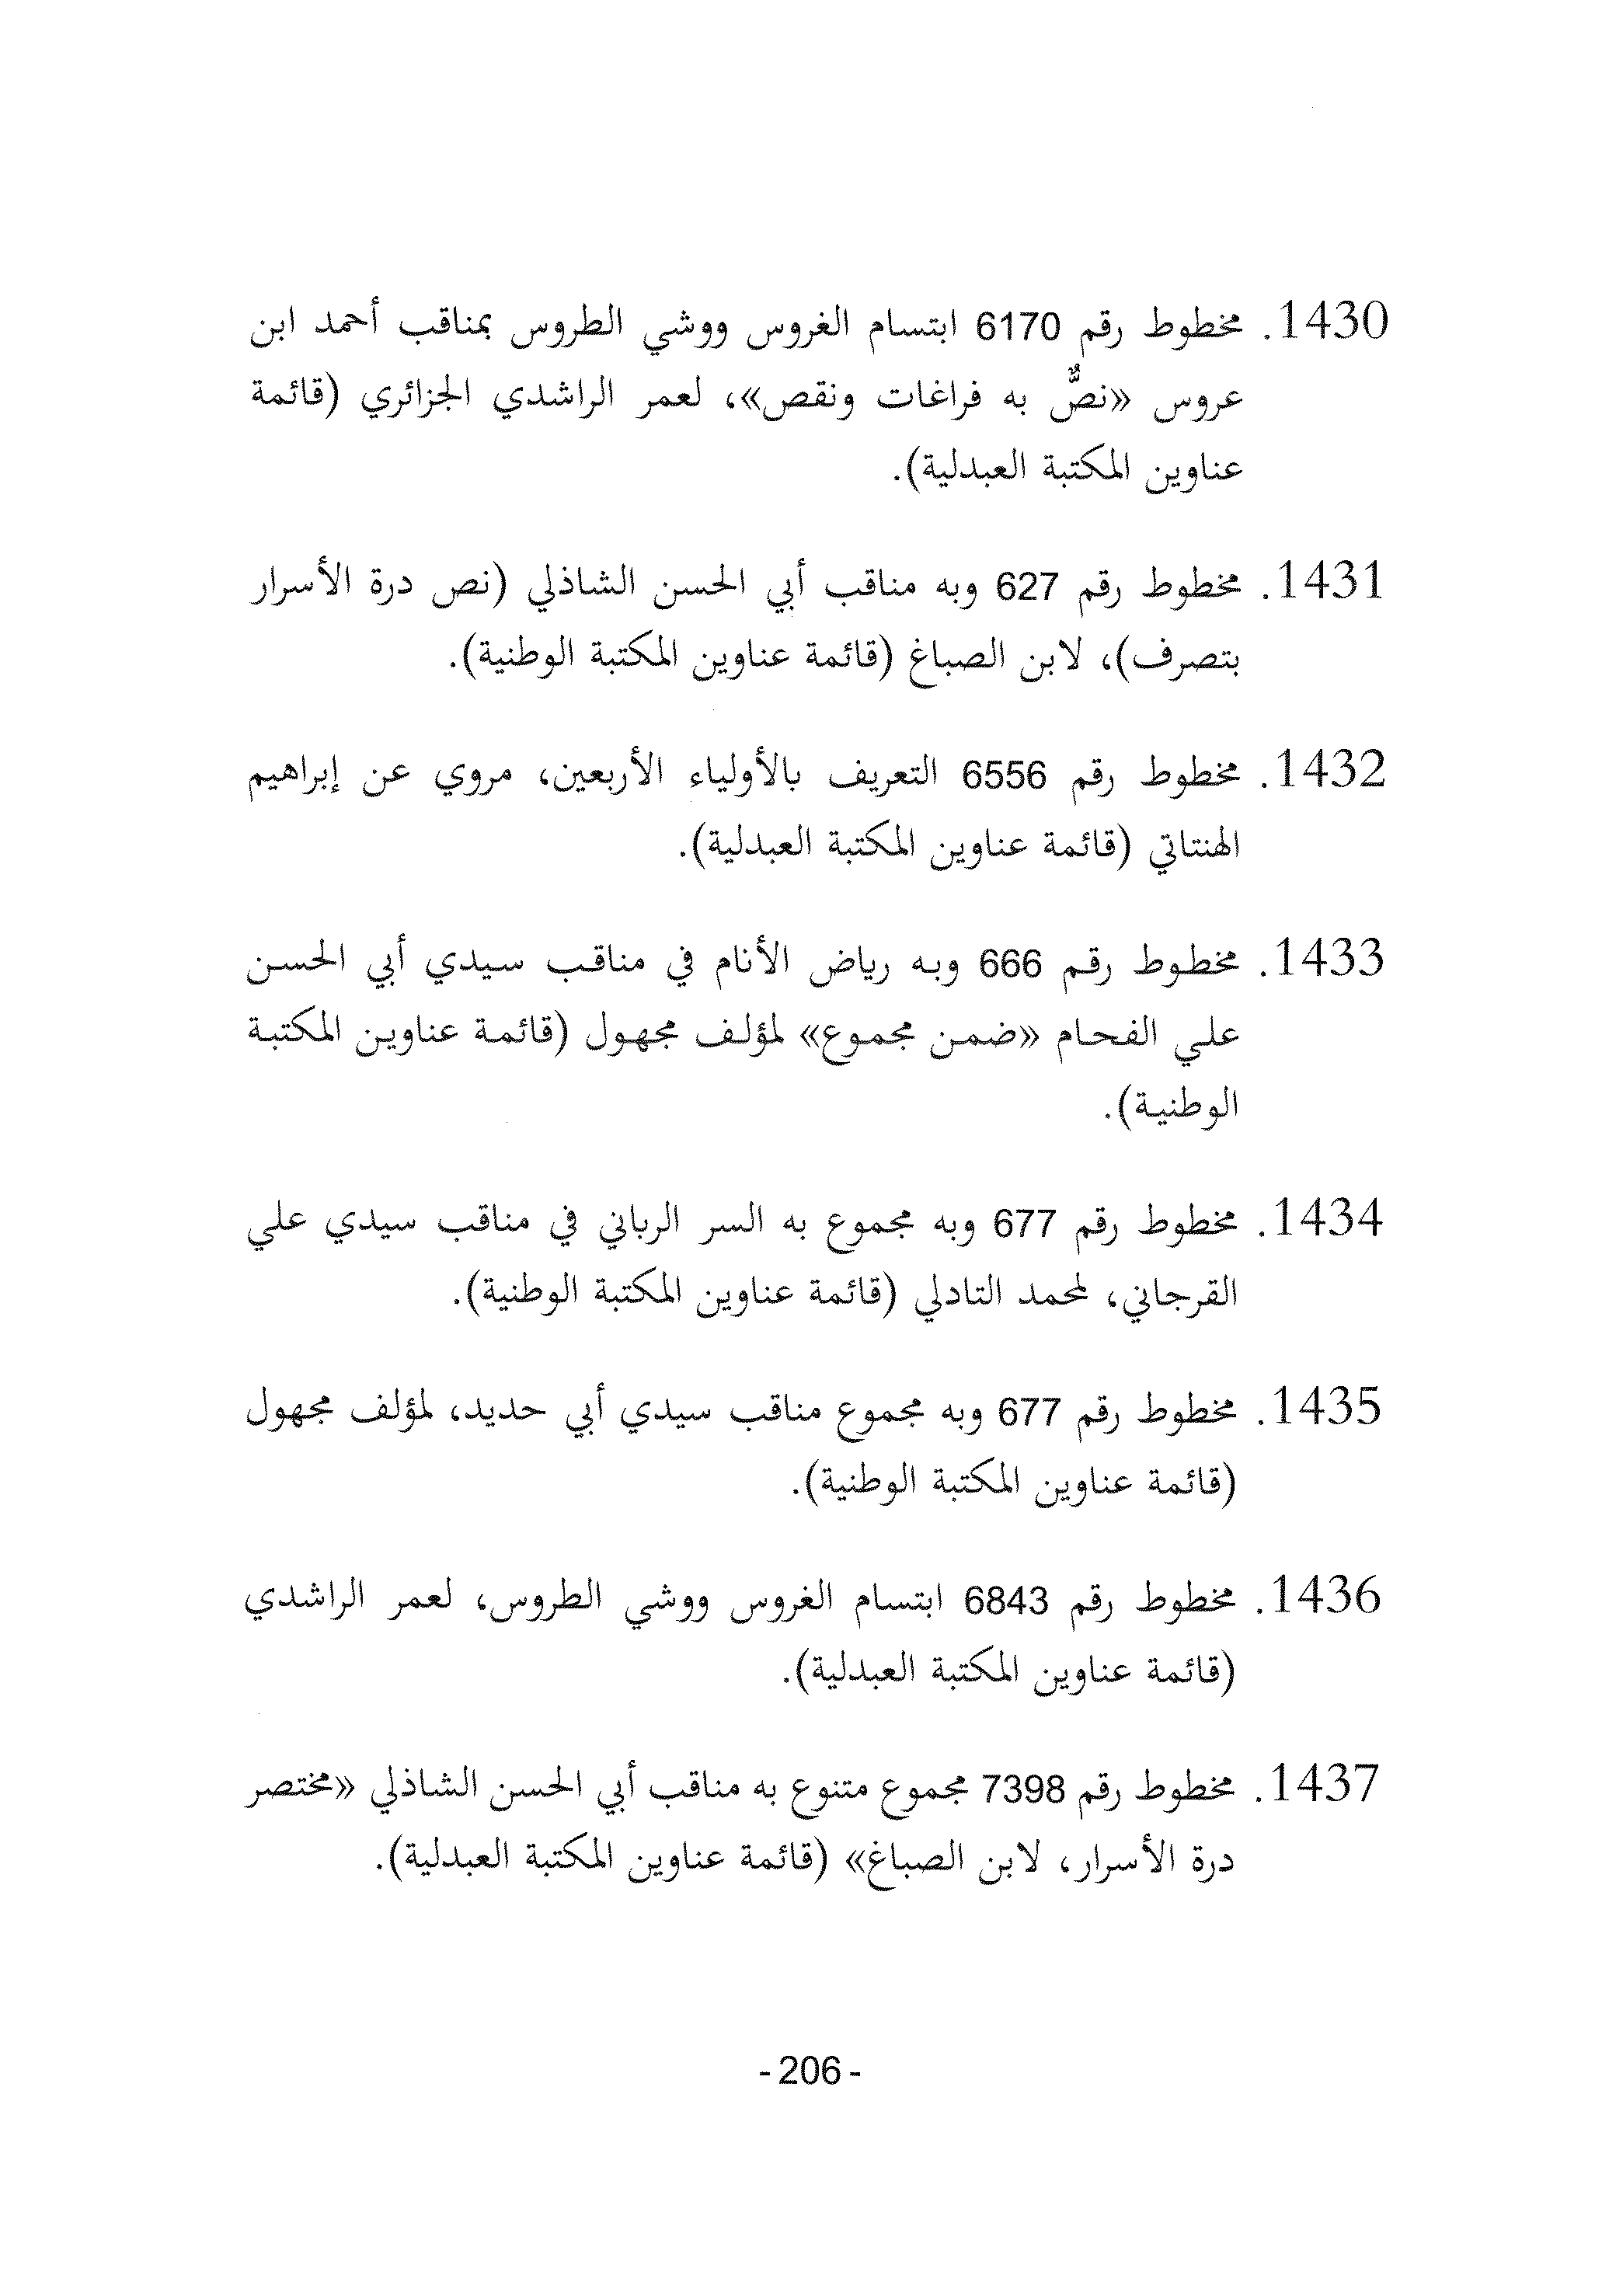 1430. مخطوط رقم 6170 ابتسام الغروس ووشي الطروس بمناقب أحمد ابن
عروس «نصٌّ به فراغات ونقص»، لعمر الراشدي الجزائري (قائمة
عناوين المكتبة العبدلية).
1431. مخطوط رقم 627 وبه مناقب أبي الحسن الشاذلي (نص درة الأسرار
بتصرف)، لابن الصباغ (قائمة عناوين المكتبة الوطنية).
1432. مخطوط رقم 6556 التعريف بالأولياء الأربعين، مروي عن إبراهيم
الهنتاتي (قائمة عناوين المكتبة العبدلية).
1433. مخطوط رقم 666 وبه رياض الأنام في مناقب سيدي أبي الحسن
علي الفحام «ضمن مجموع» لمؤلف مجهول (قائمة عناوين المكتبة
الوطنية).
1434. مخطوط رقم 677 وبه مجموع به السر الرباني في مناقب سيدي علي
القرجاني، لمحمد التادلي (قائمة عناوين المكتبة الوطنية).
1435. مخطوط رقم 677 وبه مجموع مناقب سيدي أبي حديد، لمؤلف مجهول
(قائمة عناوين المكتبة الوطنية).
1436. مخطوط رقم 6843 ابتسام الغروس ووشي الطروس، لعمر الراشدي
(قائمة عناوين المكتبة العبدلية).
1437. مخطوط رقم 7398 مجموع متنوع به مناقب أبي الحسن الشاذلي «مختصر
درة الأسرار، لابن الصباغ» (قائمة عناوين المكتبة العبدلية).
- 206 -